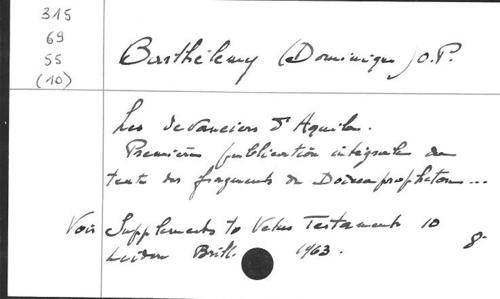 315
69
55
(10)
Barthélemy (Dominique) O.P.
Les devanciers d'Aquila.
Première publication intégrale du
texte des fragments du Dodécaprophéton...
Voir Supplements to Vetus Testamentum 10
Leiden Brill. 1963. 8°